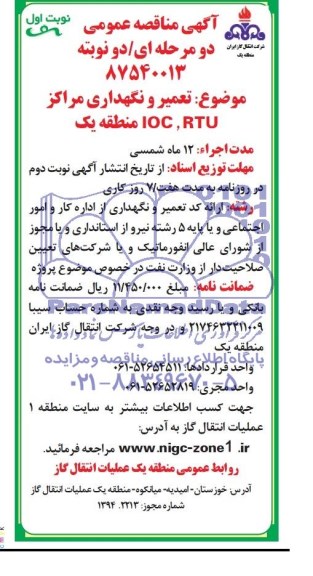 نوبت اول
شرکت انتقال گاز ایران
منطقه یک
آگهی مناقصه عمومی
دو مرحله ای/دو نوبته
۸۷۵۴۰۰۱۳
موضوع: تعمیر و نگهداری مراکز
IOC , RTU منطقه یک
مدت اجراء: ۱۲ ماه شمسی
مهلت توزیع اسناد: از تاریخ انتشار آگهی نوبت دوم
در روزنامه به مدت هفت/۷ روز کاری
رشته: ارائه کد تعمیر و نگهداری از اداره کار و امور
اجتماعی و یا پایه ۵ رشته نیرو از استانداری و یا مجوز
از شورای عالی انفورماتیک و یا شرکت‌های تعیین
صلاحیت‌دار از وزارت نفت در خصوص موضوع پروژه
ضمانت نامه: مبلغ ۱۱/۴۵۰/۰۰۰ ریال ضمانت نامه
بانکی و یا رسید وجه نقدی به شماره حساب سیبا
۲۱۷۴۶۳۲۲۱۱۰۰۹ و در وجه شرکت انتقال گاز ایران
منطقه یک
پایگاه اطلاع رسانی مناقصه و مزایده
واحد قراردادها: ۵۲۶۵۴۵۱۱-۰۶۱
۰۲۱-۸۸۳۴۹۶۷۰-۵
واحد مجری: ۵۲۶۵۲۸۱۹-۰۶۱
جهت کسب اطلاعات بیشتر به سایت منطقه ۱
عملیات انتقال گاز به آدرس:
www.nigc-zone1.ir مراجعه فرمائید.
روابط عمومی منطقه یک عملیات انتقال گاز
آدرس: خوزستان-امیدیه-میانکوه-منطقه یک عملیات انتقال گاز
شماره مجوز: ۱۳۹۴.۲۲۱۳